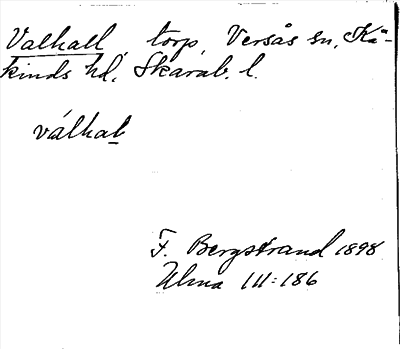 Valhall, torp, Versås sn, Kå-
kinds hd, Skarab. l.
válhal
F. Bergstrand 1898
Ulma III:186